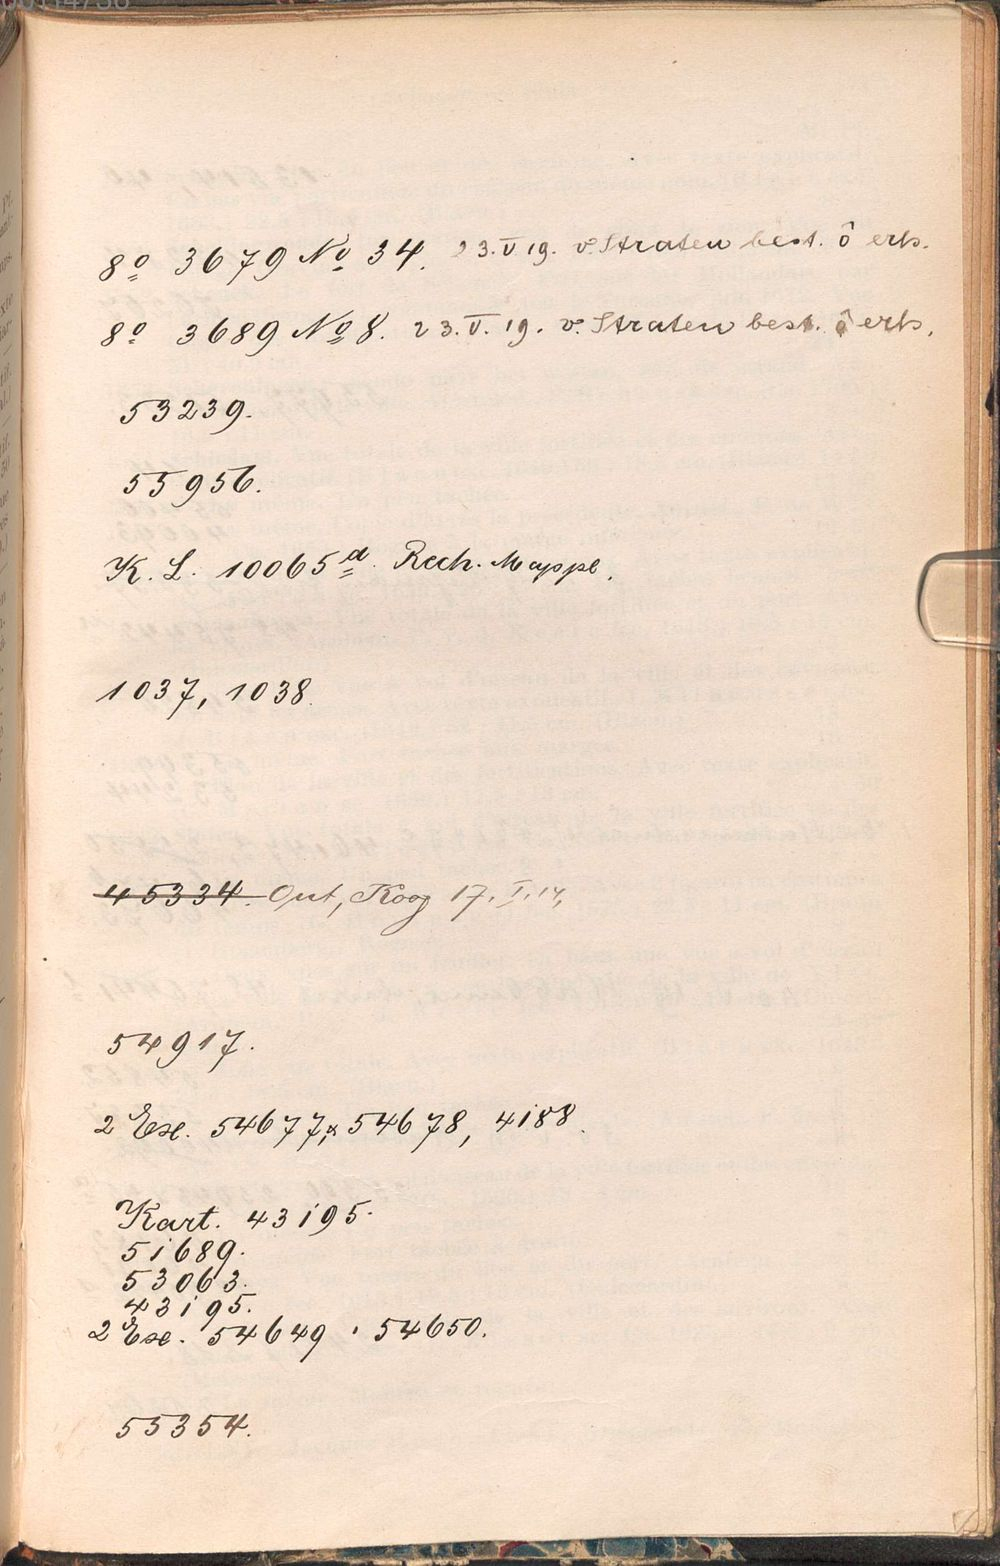 8º 3679 Nº 34. 23.V.19. v. Straten best. ô erh.
8º 3689 Nº 8. 23.V.19. v. Straten best. ô erh.
53239.
55956.
K. L. 10065 d. Rech. Mappe.
1037, 1038.
45334. Ont, Koog 17. I. 14,
54917.
2 Ex. 54677, 54678, 4188.
Kart. 43195.
51689.
53063.
43195.
2 Ex. 54649 . 54650.
55354.